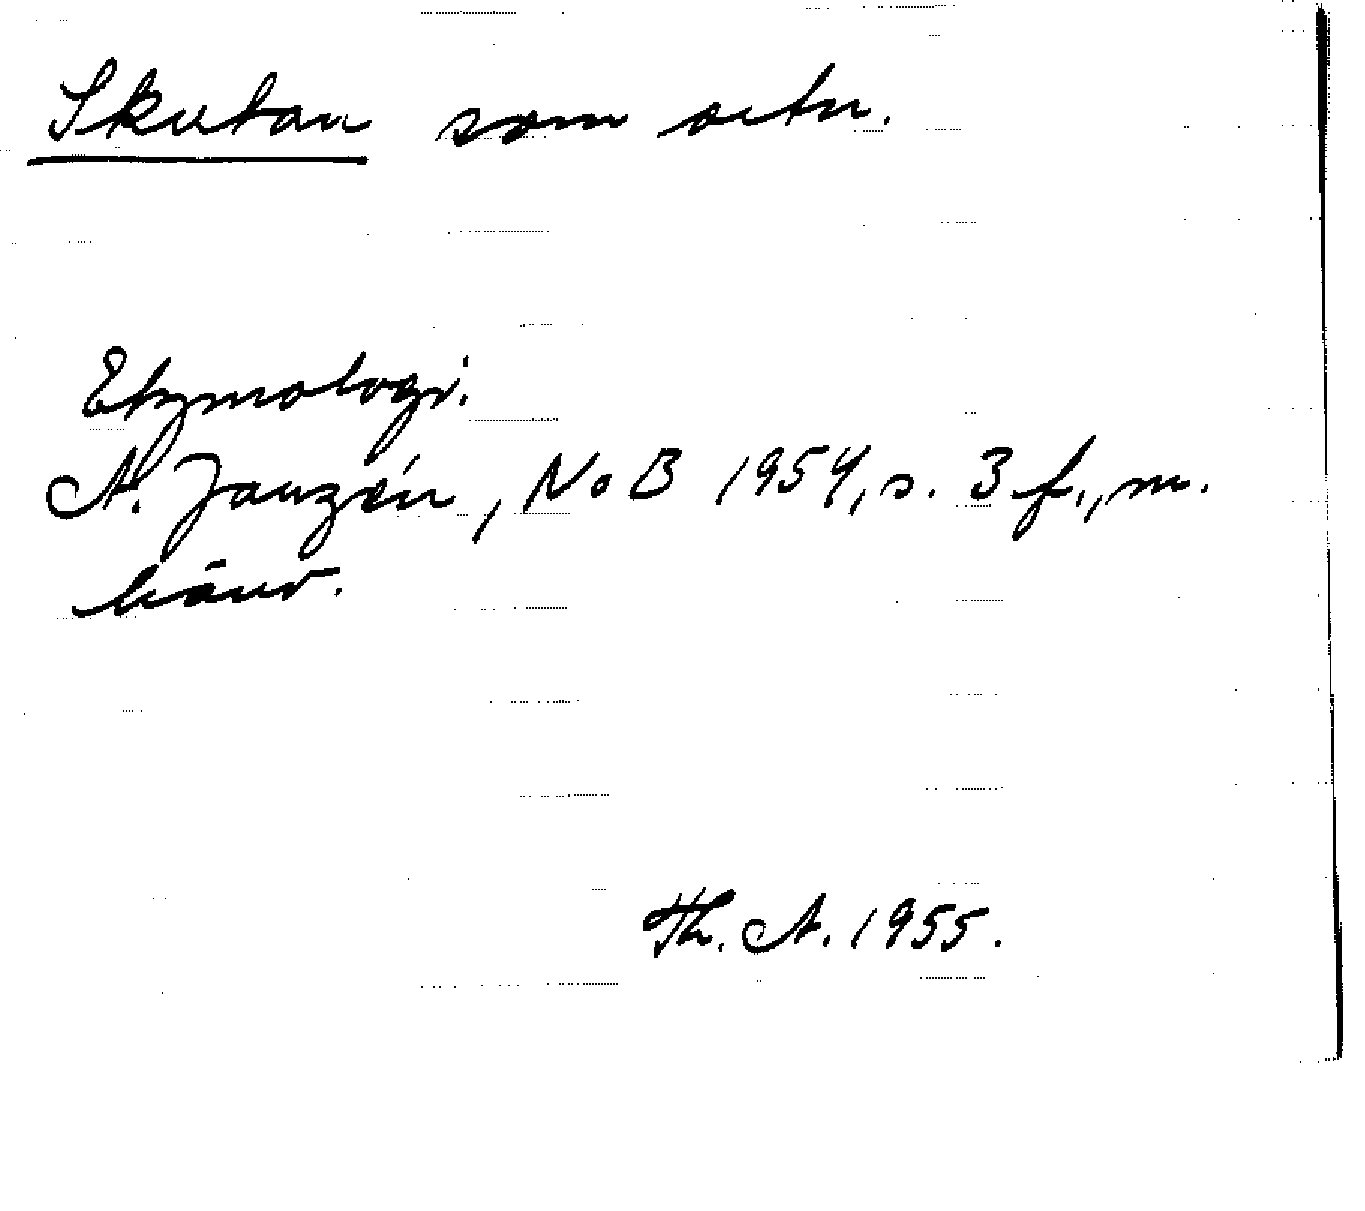 Skutan som ortn.
Etymologi.
A. Janzén, NoB 1954, s. 3 f., m.
hänv.
Th. A. 1955.